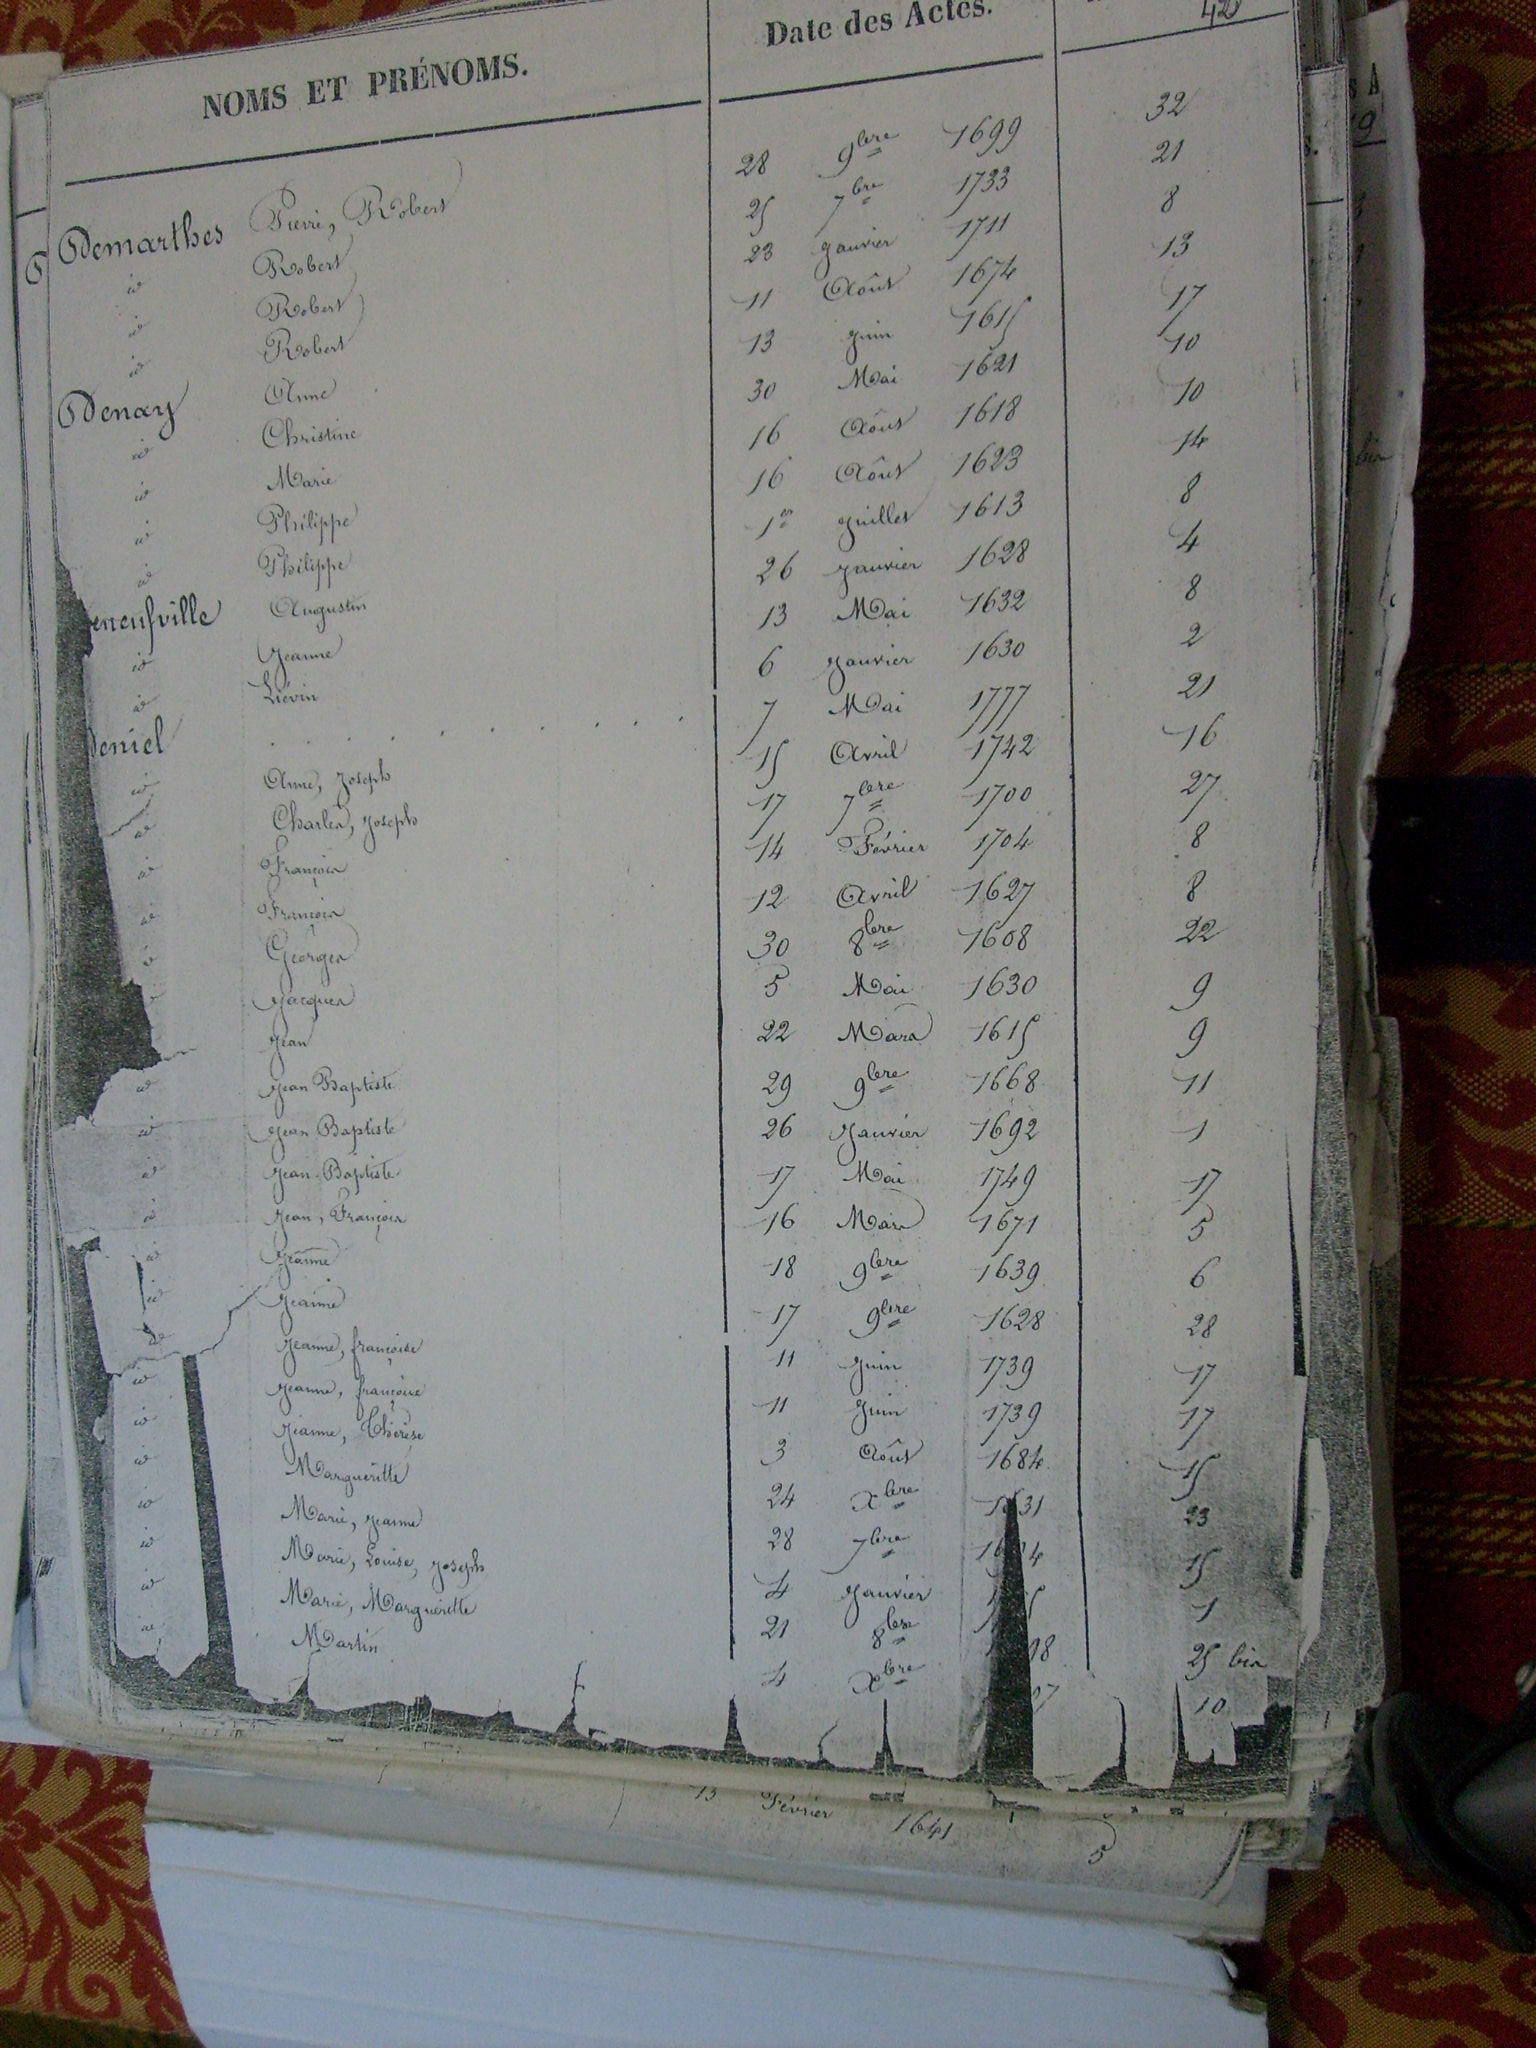 42
NOMS ET PRÉNOMS. Date des Actes.
Demarthes Pierre, Robert 28 9bre 1699 32
id Robert 25 7bre 1733 21
id Robert 23 Janvier 1711 8
id Robert 11 Août 1674 13
Denay Anne 13 Juin 1615 17
id Christine 30 Mai 1621 10
id Marie 16 Août 1618 10
id Philippe 16 Août 1623 14
id Philippe 1er Juillet 1613 8
eneufville Augustin 26 Janvier 1628 4
id Jeanne 13 Mai 1632 8
id Liévin 6 Janvier 1630 2
Deniel . . . . . . . . . 7 Mai 1777 21
id Anne, Joseph 15 Avril 1742 16
id Charles, Joseph 17 7bre 1700 27
id François 14 Février 1704 8
id François 12 Avril 1627 8
id Georges 30 8bre 1608 22
Jacques 5 Mai 1630 9
Jean 22 Mars 1615 9
id Jean Baptiste 29 9bre 1668 11
id Jean Baptiste 26 Janvier 1692 1
id Jean Baptiste 17 Mai 1749 17
id Jean, François 16 Mars 1671 5
id Jeanne 18 9bre 1639 6
id Jeanne 17 9bre 1628 28
id Jeanne, françoise 11 Juin 1739 17
id Jeanne, françoise 11 Juin 1739 17
id Jeanne, Thérèse 3 Août 1684 15
id Margueritte 24 Xbre 1631 23
id Marie, Jeanne 28 7bre 15
id Marie, Louise, Joseph 4 Janvier 1
id Marie, Margueritte 21 8bre 98 25 bis
id Martin 4 Xbre 07 10
13 Février 1641 5